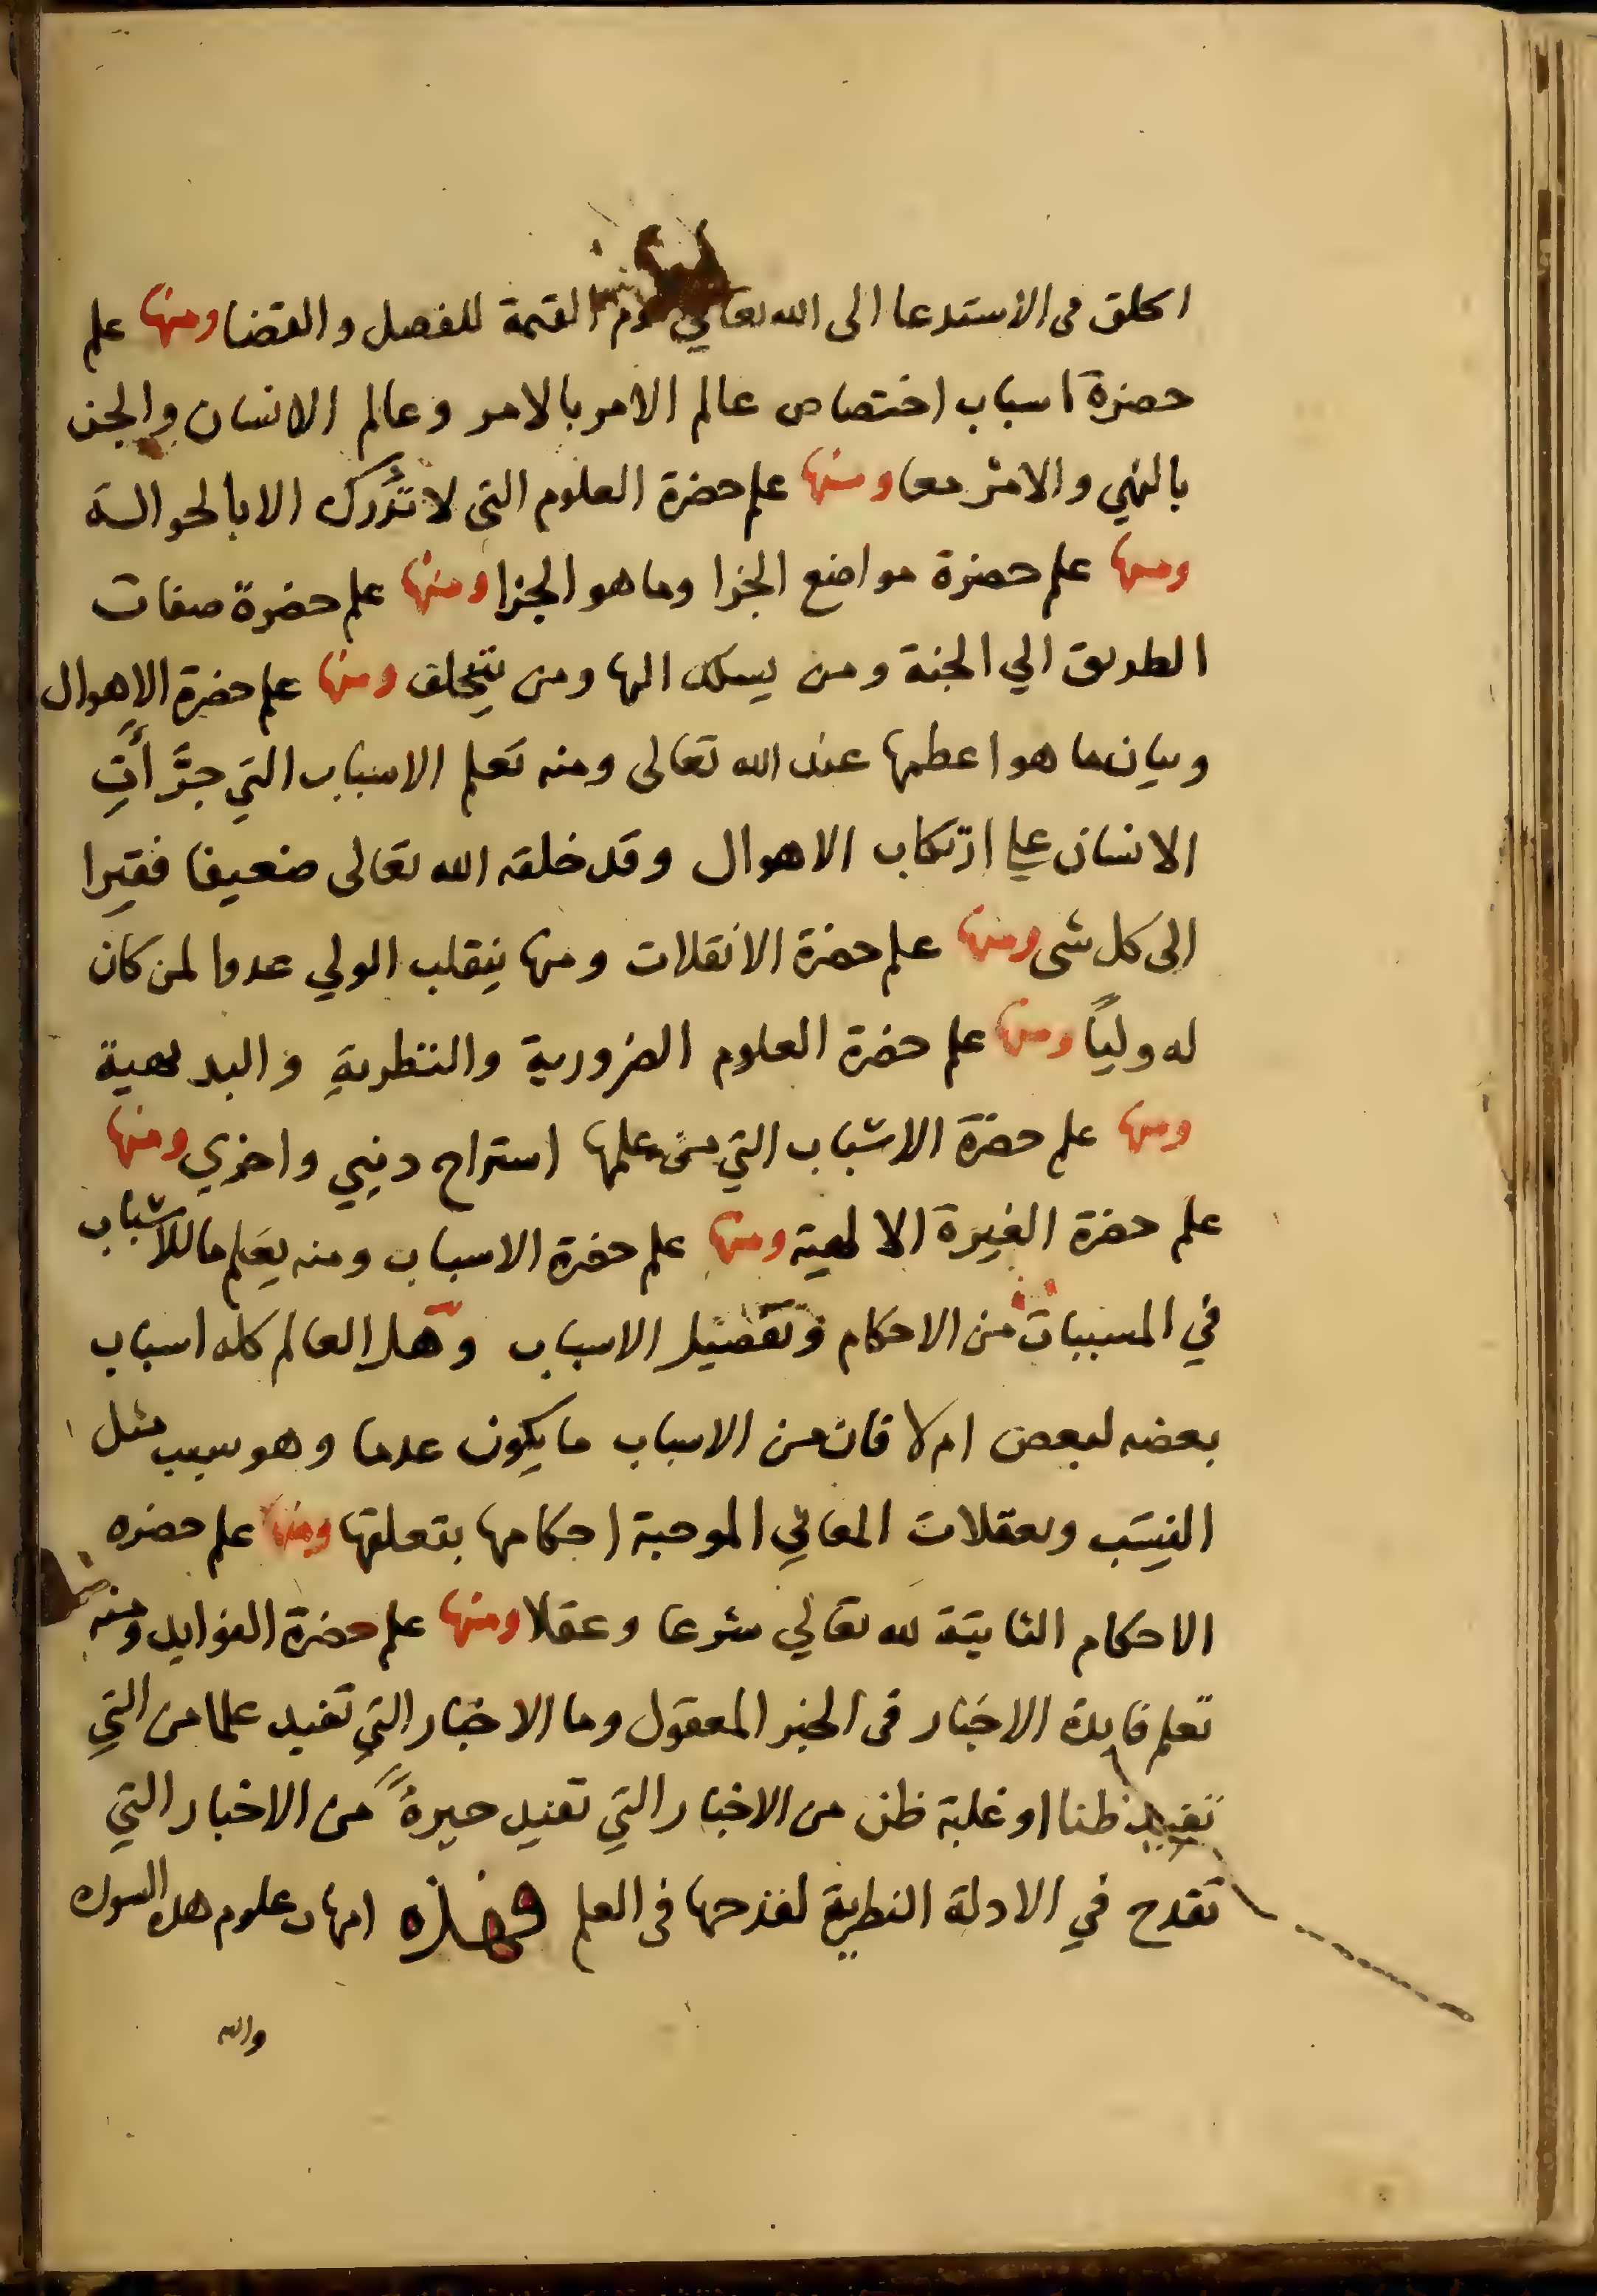 الخلق في الاستدعا الى الله تعالى يوم القيمة للفصل والقضا ومنها علم
حضرة اسباب اختصاص عالم الامر بالامر وعالم الانسان والجن
بالنهي والامر معا ومنها علم حضرة العلوم التي لا تُدرك الا بالحوالة
ومنها علم حضرة مواضع الجزا وما هو الجزا ومنها علم حضرة صفات
الطريق الي الجنة ومن يسلك اليها ومن يتخلف ومنها علم حضرة الاهوال
وبيان ما هو اعظمها عند الله تعالى ومنه تعلم الاسباب التي جرَّأتِ
الانسان علي ارتكاب الاهوال وقد خلقه الله تعالى ضعيفا فقيرا
الى كل شى ومنها علم حضرة الانقلات ومنها ينقلب الولي عدوا لمن كان
له وليًا ومنها علم حضرة العلوم الضرورية والنظرية والبديهية
ومنها علم حضرة الاسباب التي من علمها استراح ديني واخري ومنها
علم حضرة الغيرة الالهية ومنها علم حضرة الاسباب ومنه يعلم ما للاسباب
في المسببات من الاحكام وتفصيل الاسباب وهل العالم كله اسباب
بعضه لبعض ام لا فان من الاسباب ما يكون عدما وهو سبب مثل
النِسَب وتعقلات المعاني الموجبة احكامها بتعلقها ومنها علم حضره
الاحكام الثابتة لله تعالي شرعا وعقلا ومنها علم حضرة الفوايد ومنه
تعلم فايدة الاخبار في الخبر المعقول وما الاخبار التي تفيد علما من التي
تفيد ظنا او غلبة ظن من الاخبار التي تفيد حيرةً من الاخبار التي
تقدح في الادلة النظرية لقدحها في العلم فهذه امهات علوم هذه السوره
والله